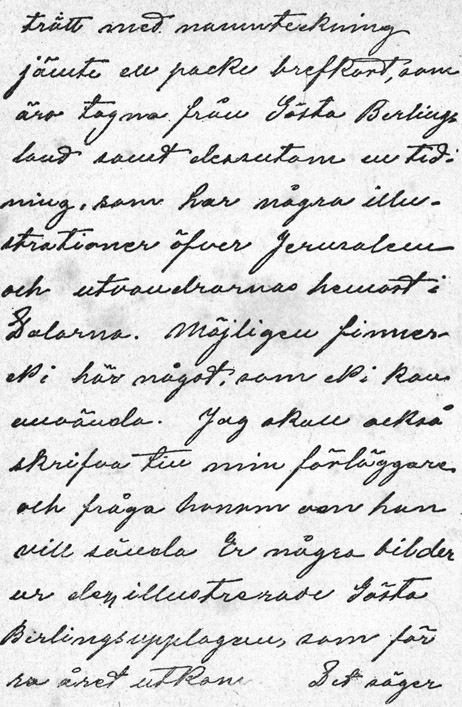 trätt med namnteckning
jämte en packe brefkort, som
äro tagna från Gösta Berlings
land samt dessutom en tid-
ning, som har några illu-
strationer öfver Jerusalem
och utvandrarnas hemort i
Dalarna. Möjligen finner
Ni här något, som Ni kan
använda. Jag skall också
skrifva till min förläggare
och fråga honom om han
vill sända Er några bilder
ur den illustrerade Gösta
Berlingsupplagan, som för
ra året utkom Det säger